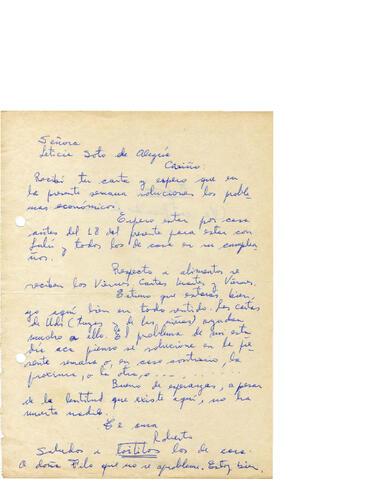 Señora
Leticia Soto de Alegría
Cariño:
Recibí tu carta y espero que en
la presente semana soluciones los proble-
mas económicos.
Espero estar por casa
antes del 18 del presente para estar con
y todos los de casa en su cumplea-
ños.
Respecto a alimentos se
reciben los Viernes. Cartas Martes y Viernes.
Estimo que estarás bien,
yo aquí bien en todo sentido. Las cartas
de Uds (tuyas y de las niñas) ayudan
mucho a ello. El problema de mi esta-
día acá pienso se solucione en la pre-
sente semana o, en caso contrario, la
próxima, o la otra, o ............
Bueno de esperanzas, a pesar
de la lentitud que existe aquí, no ha
muerto nadie.
Te ama
Roberto
Saludos a toititos los de casa.
A doña Filo que no se apobleme. Estoy bien.